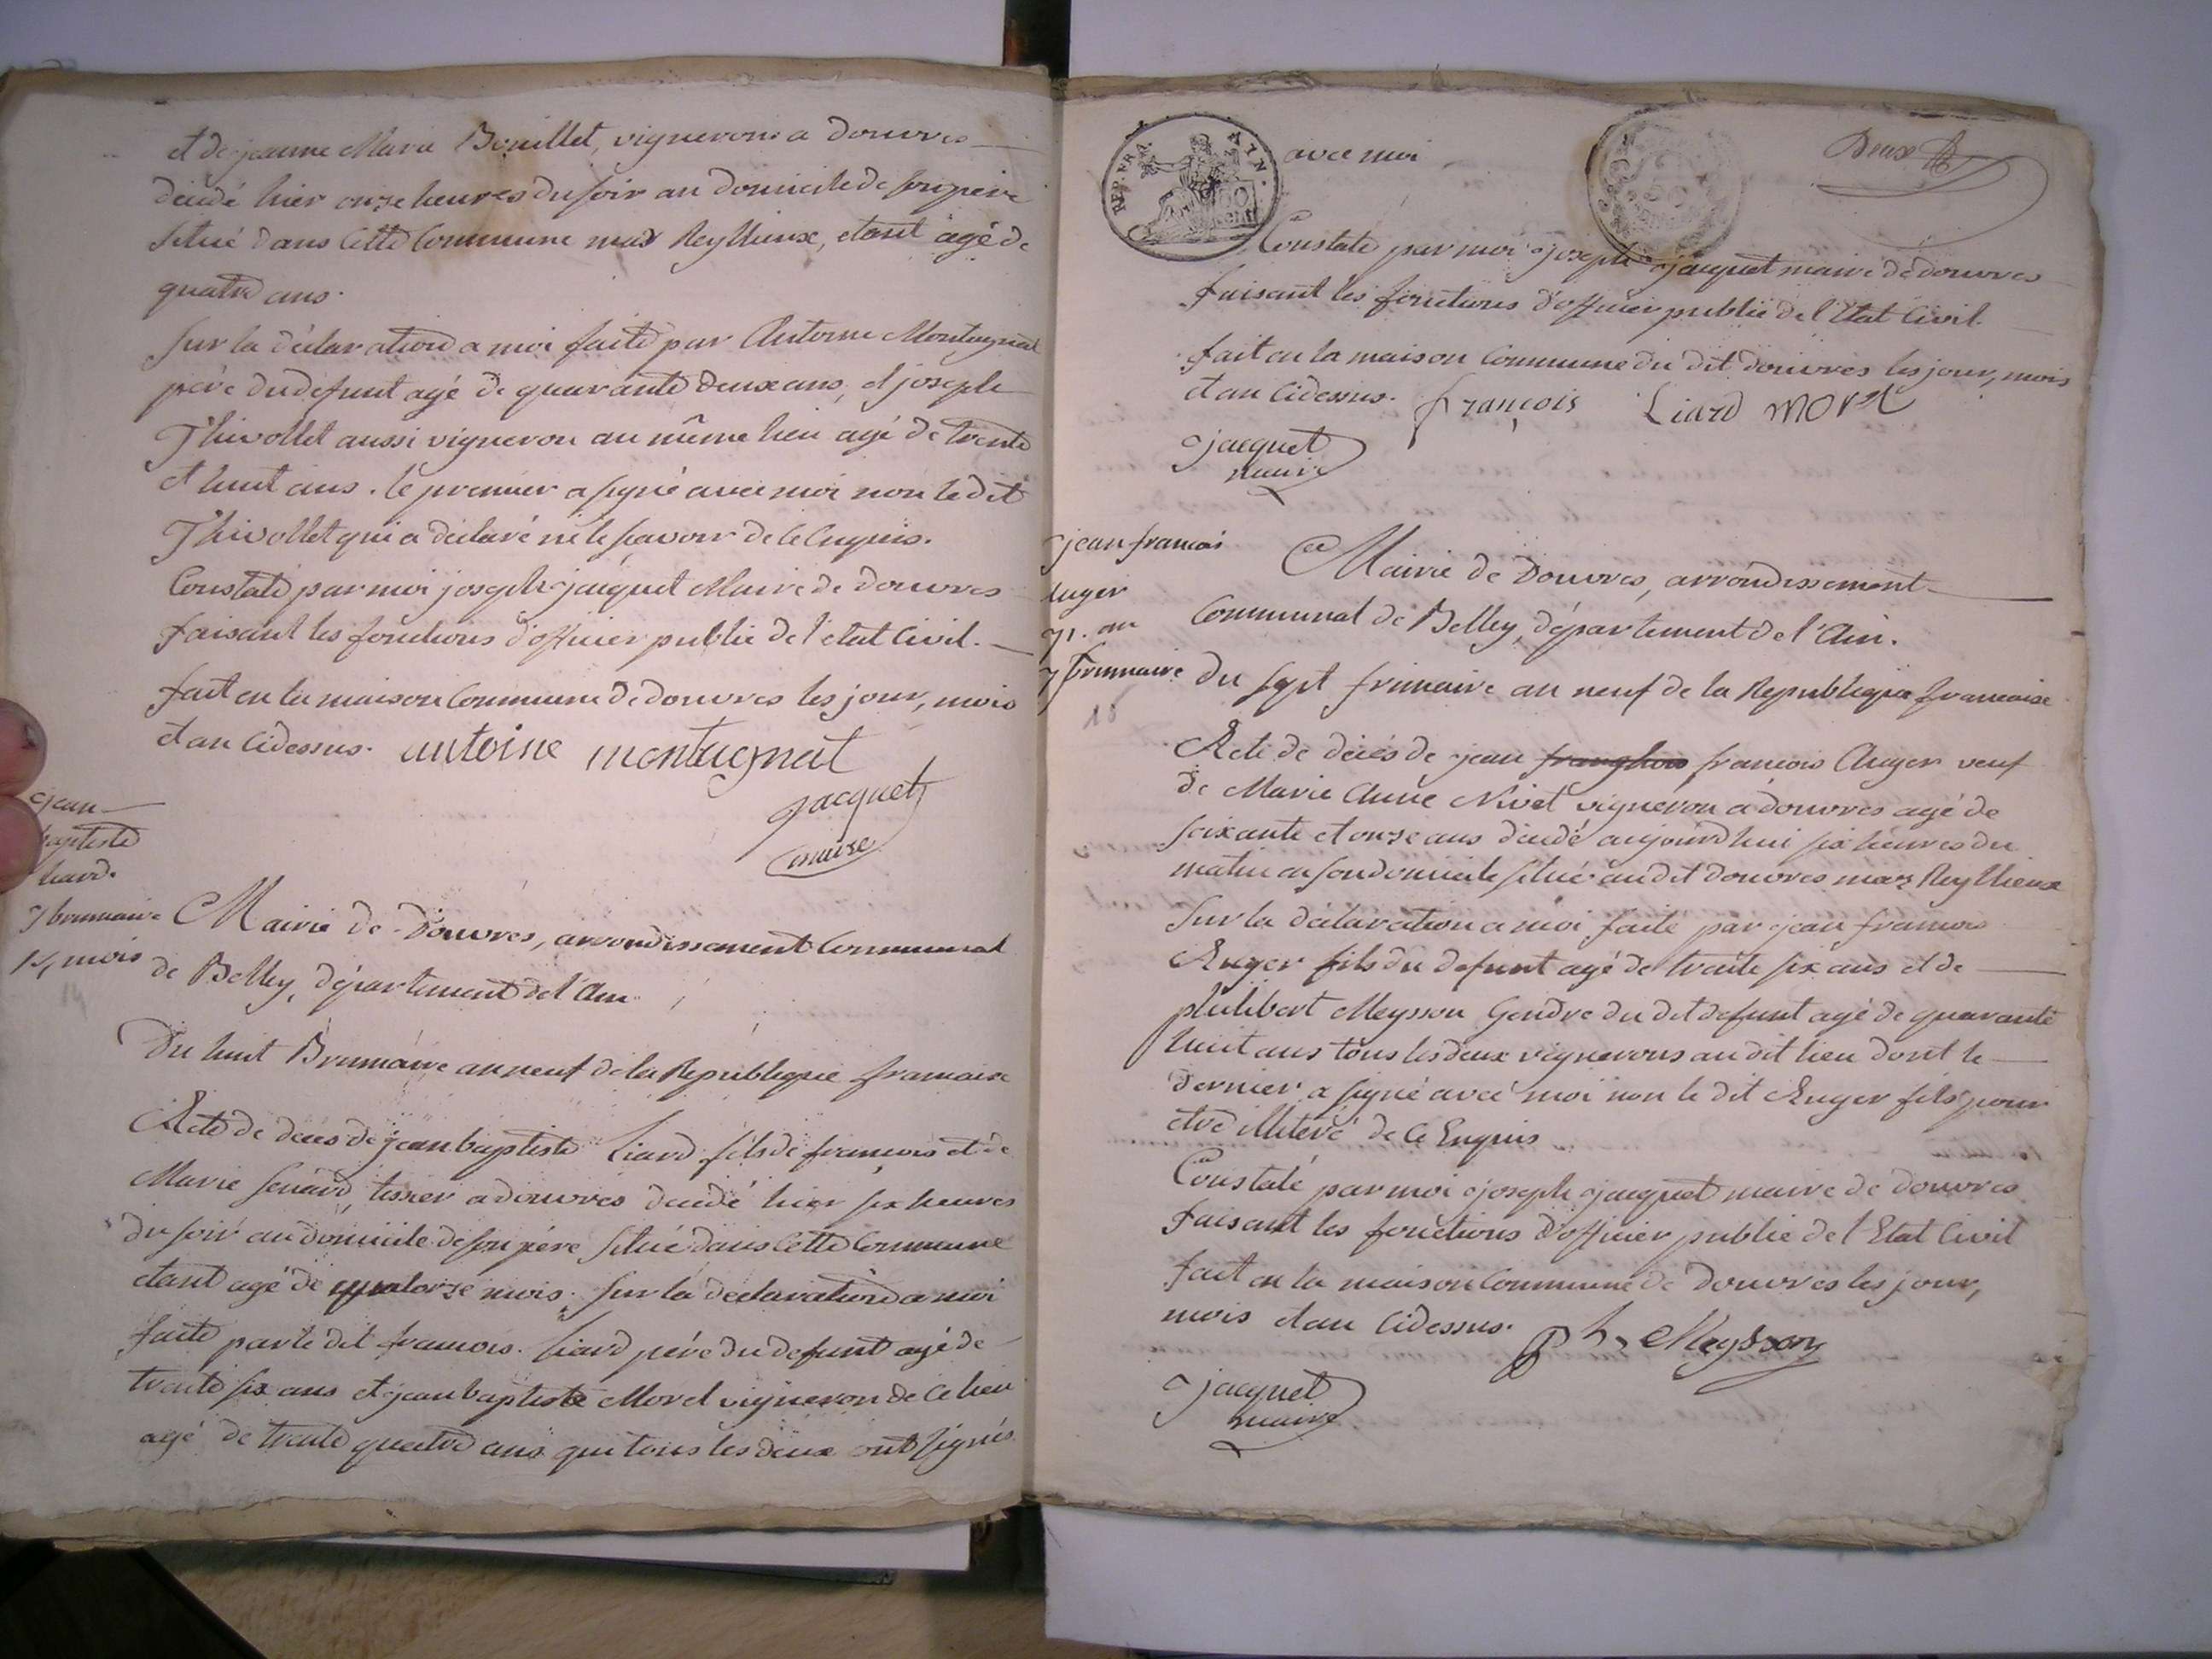 et de jeanne Marie Bouillet, vignerons a douvres
décédé hier onze heures du soir au domicile de son père
situé dans cette Commune mas Reyllieux, etant agé de
quatre ans.
Sur la déclaration a moi faite par Antoine Montagnat
père du defunt agé de quarante deux ans, et joseph
Thivollet aussi vigneron au même lieu agé de trente
et huit ans. le premier a signé avec moi non le dit
Thivollet qui a déclaré ne le sçavoir de ce Enquis.
Constaté par moi joseph jacquet Maire de douvres
faisant les fonctions d'officier public de l'etat Civil.
fait en la maison Commune de douvres les jour, mois
et an cidessus. antoine montagnat
jacquet
maire
jean
baptiste
liard.
7 brumaire
14 mois
14
Mairie de Douvres, arrondissement Communal
de Belley, département de l'Ain
Du huit Brumaire an neuf de la Republique francaise
Acte de decés de jean baptiste Liard fils de françois et de
Marie senard, tissier a douvres decedé hier six heures
du soir au domicile de son père situé dans cette Commune
etant agé de quatorze mois. Sur la declaration a moi
faite par le dit francois Liard père du defunt agé de
trente six ans et jean baptiste Morel vigneron de ce lieu
agé de trente quatre ans qui tous les deux ont signés
REP. FRA. AIN.
50
cent
Deux
avec moi
Constaté par moi joseph jacquet maire de douvres
faisant les fonctions d'officier public de l'Etat Civil.
fait en la maison Commune du dit douvres les jour, mois
et an cidessus. françois Liard morel
jacquet
maire
jean francois
Auger
71. an
7 frimaire
15
Mairie de Douvres, arrondissement
Communal de Belley, département de l'Ain.
Du sept frimaire an neuf de la Republique francaise
Acte de décés de jean francois Auger veuf
de Marie Anne Nivet vigneron a douvres agé de
soixante et onze ans décédé aujourd'hui six heures du
matin en son domicile situé audit douvres mas Reyllieux
Sur la déclaration a moi faite par jean francois
Auger fils du defunt agé de trente six ans et de
philibert Meysson Gendre du dit defunt agé de quarante
huit ans tous les deux vignerons au dit lieu dont le
dernier a signé avec moi non le dit Auger fils pour
etre illiteré de ce Enquis
Constaté par moi joseph jacquet maire de douvres
faisant les fonctions d'officier public de l'Etat Civil
fait en la maison Commune de douvres les jour,
mois et an cidessus. Ph Meysson
jacquet
maire